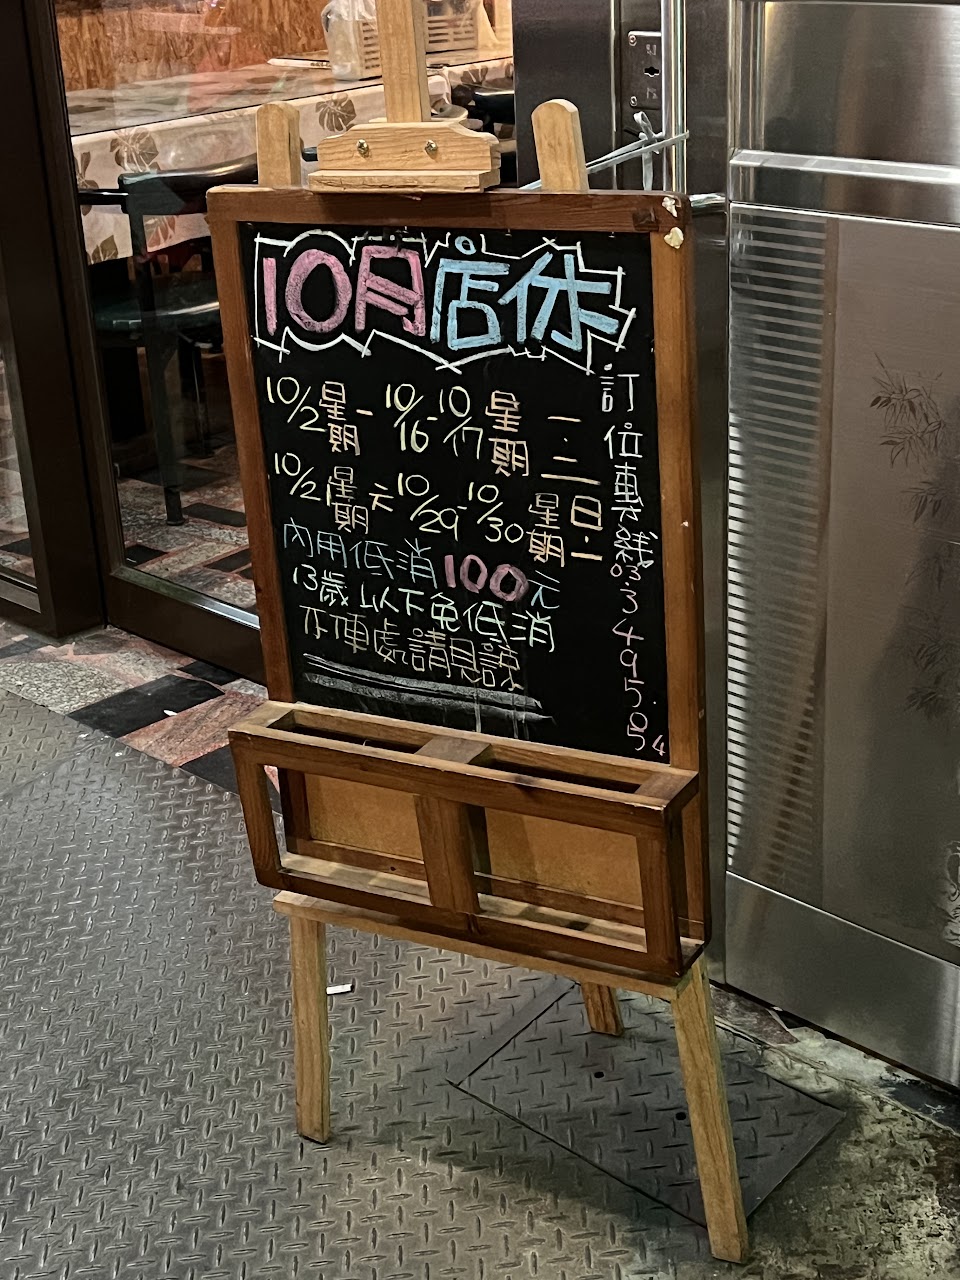 10月店休
10/2星期一 10/16-10/17星期一.二
10/21星期六 10/29-10/30星期日.一
內用低消100元
13歲以下免低消
不便處請見諒
訂位專線03.3495054